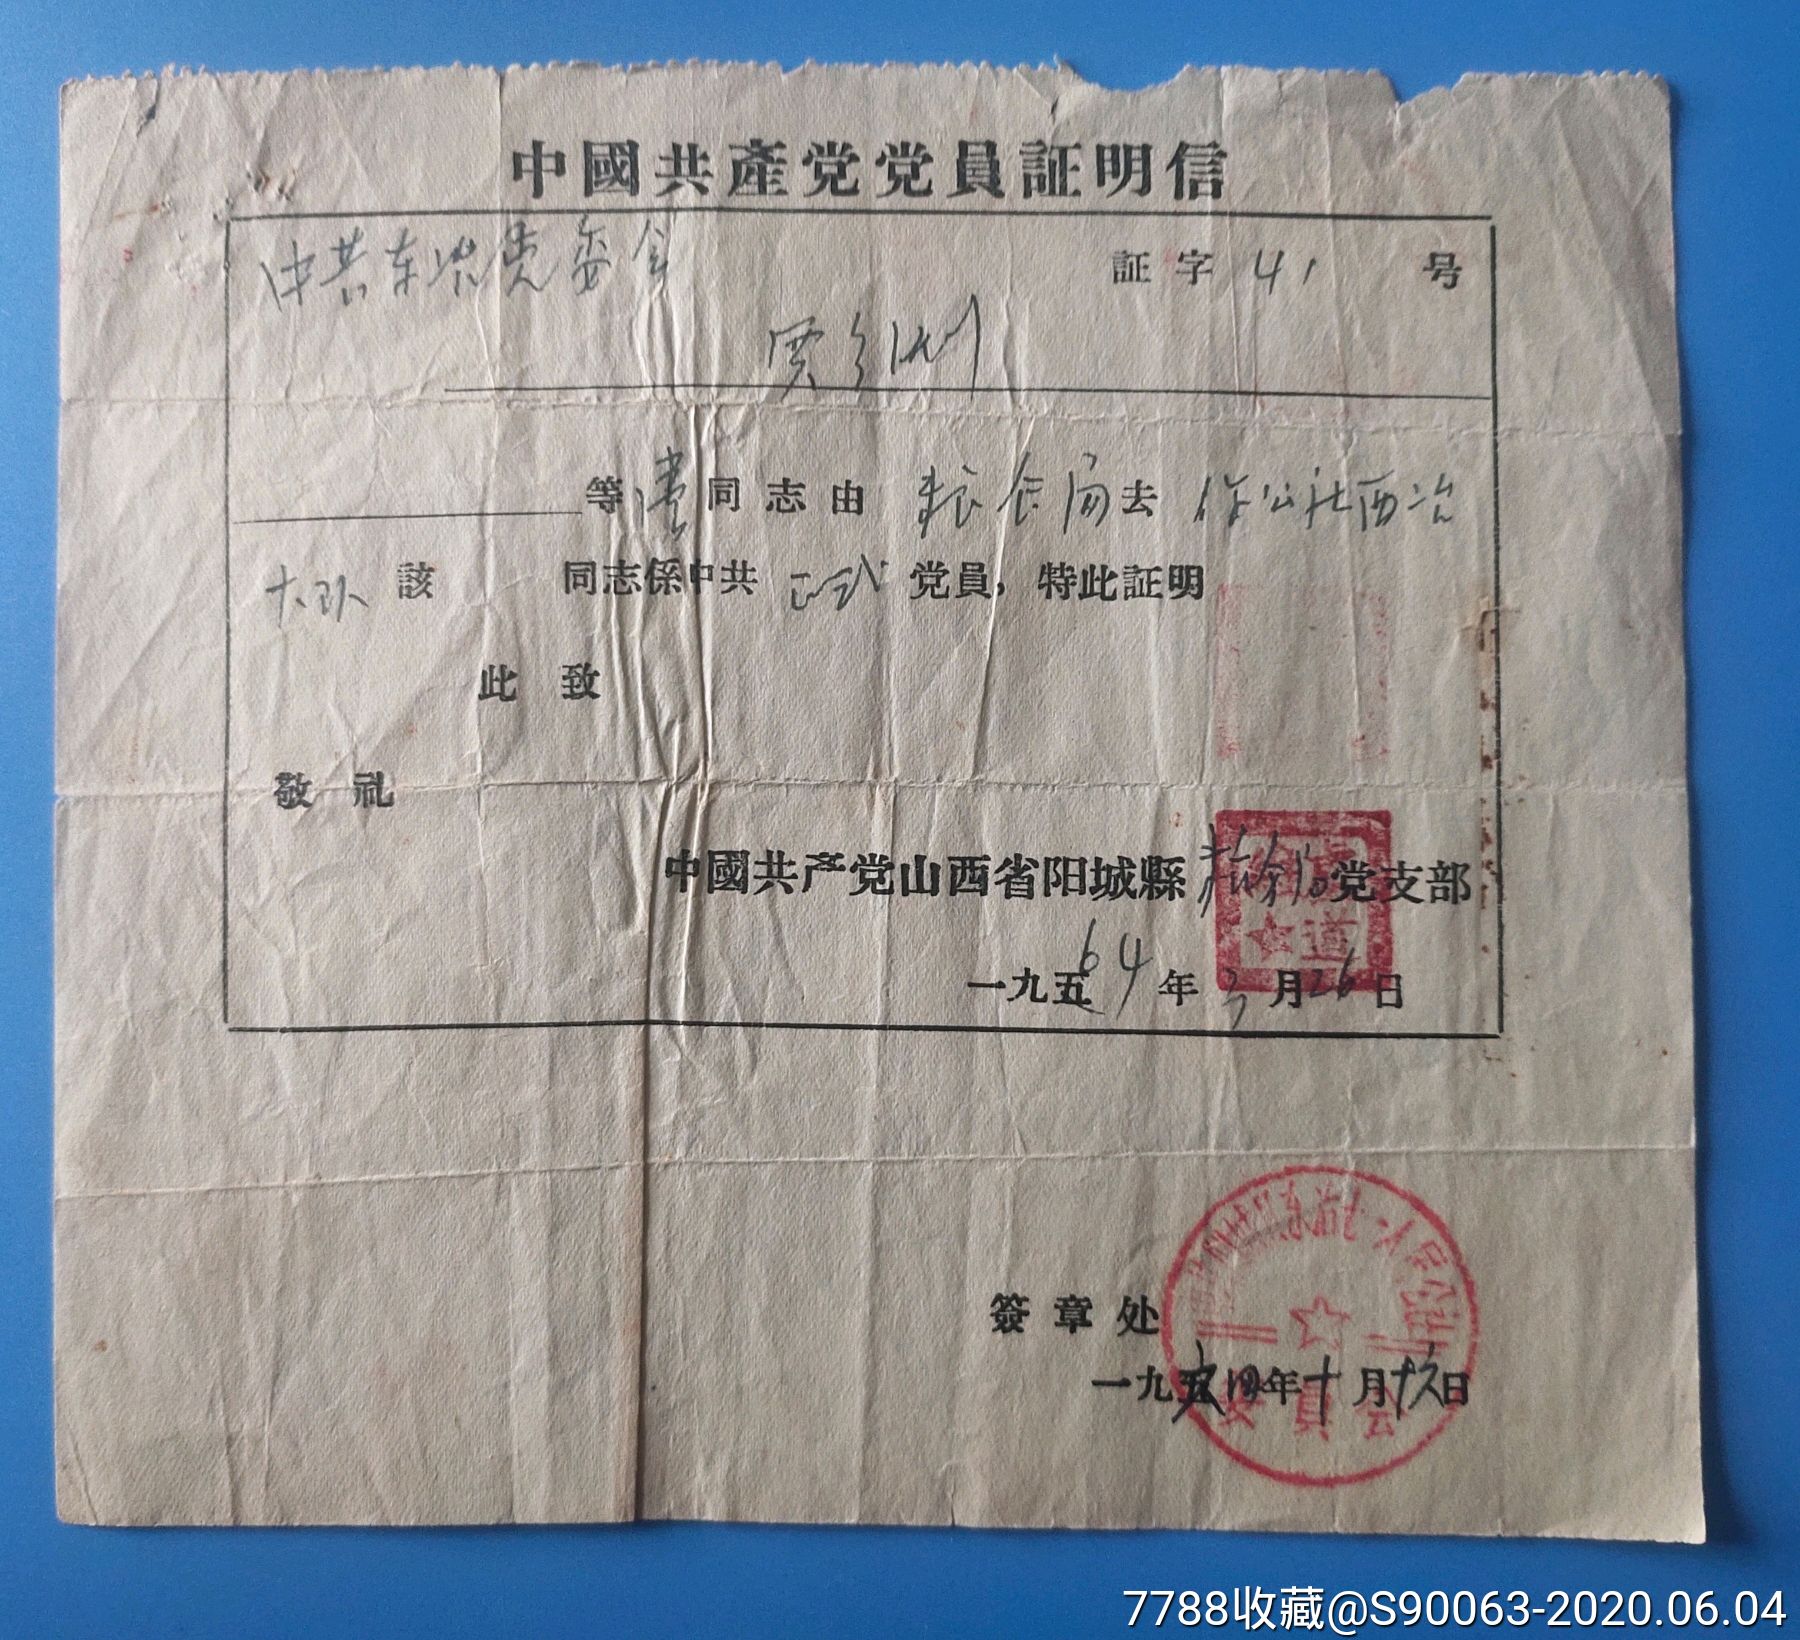 中國共產党党員証明信
中共东冶党委会 証字 41 号
贾
等壹同志由 粮食局去 你公社西冶
大队 該 同志係中共 正式 党員，特此証明
此致
敬礼
中國共产党山西省阳城縣粮食局党支部
一九五64年3月26日
簽章处
一九五四年十月十六日
委員会
7788收藏@S90063-2020.06.04